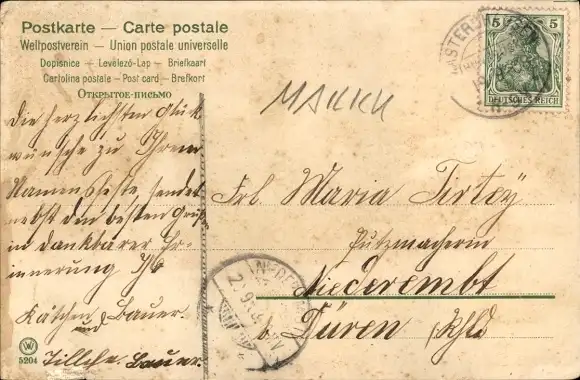 Postkarte — Carte postale
Weltpostverein — Union postale universelle
Dopisnice — Levelező-Lap — Briefkaart
Cartolina postale — Post card — Brefkort
Открытое-письмо
5 5
DEUTSCHES REICH
Die herzlichsten Glück
wünsche zu Ihrem
Namensfeste, sendet
nebst den besten Grüße
in dankbarer Er-
innerung
Käthchen Bauer.
und
Bauer.
Frl. Maria Tirtey
Putzmacherin
Niederembt
b. Düren (Rhld
5204